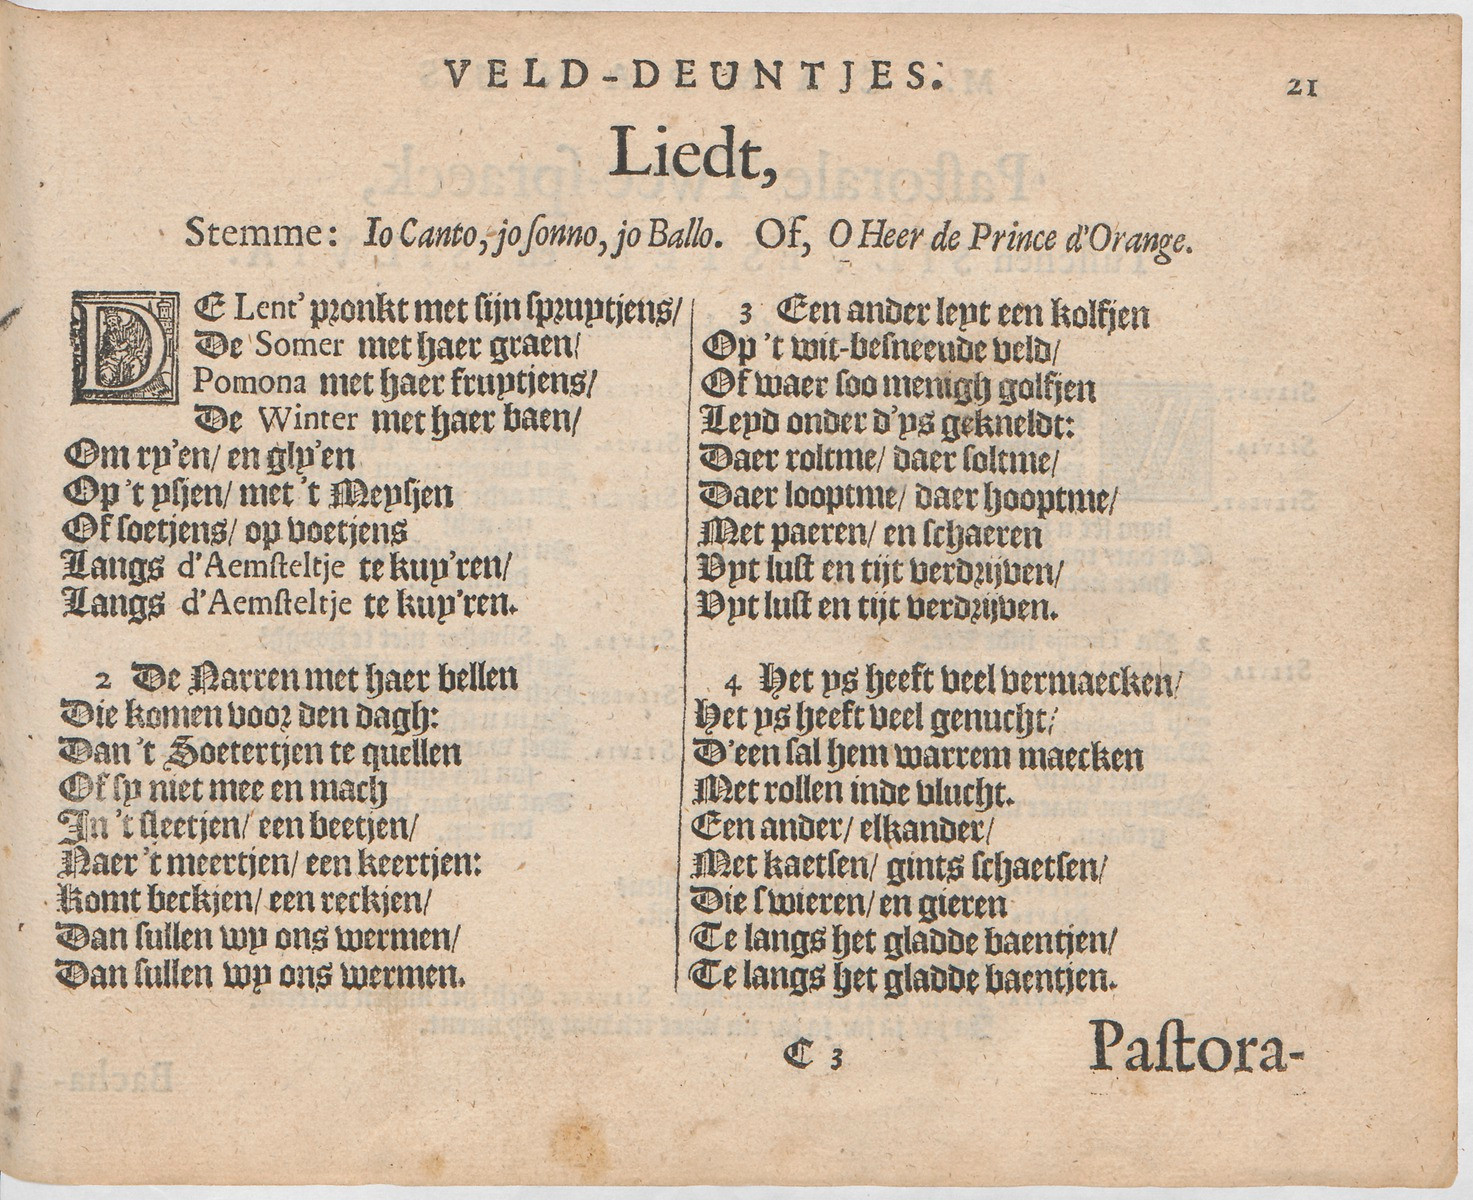 VELD-DEUNTJES.
21
Liedt,
Stemme: Io Canto, jo sonno, jo Ballo. Of, O Heer de Prince d'Orange.
DE Lent' pronkt met sijn spruytjens/
De Somer met haer graen/
Pomona met haer fruytjens/
De Winter met haer baen/
Om ry'en/ en gly'en
Op 't ysjen/ met 't Meysjen
Of soetjens/ op voetjens
Langs d'Aemsteltje te kuy'ren/
Langs d'Aemsteltje te kuy'ren.
2 De Narren met haer bellen
Die komen voor den dagh:
Dan 't Soetertjen te quellen
Of sy niet mee en mach
In 't sleetjen/ een beetjen/
Naer 't meertjen/ een keertjen:
Komt beckjen/ een reckjen/
Dan sullen wy ons wermen/
Dan sullen wy ons wermen.
3 Een ander leyt een kolfjen
Op 't wit-besneeude veld/
Of waer soo menigh golfjen
Leyd onder d'ys gekneldt:
Daer roltme/ daer soltme/
Daer looptme/ daer hooptme/
Met paeren/ en schaeren
Uyt lust en tijt verdrijven/
Uyt lust en tijt verdrijven.
4 Het ys heeft veel vermaecken/
Het ys heeft veel genucht/
D'een sal hem warrem maecken
Met rollen inde vlucht.
Een ander/ elkander/
Met kaetsen/ gints schaetsen/
Die swieren/ en gieren
Te langs het gladde baentjen/
Te langs het gladde baentjen.
C 3
Pastora-